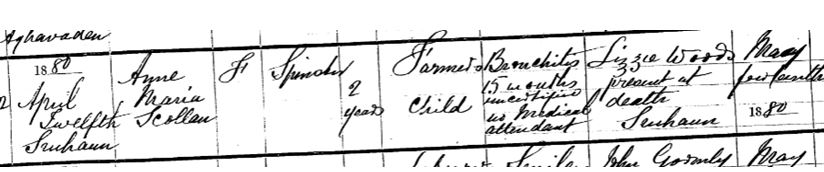 Aghavaden
1880
April
Twelfth
Sruhaun
Anne
Maria
Scollan
F
Spinster
2
years
Farmers
Child
Bronchitis
15 months
uncertified
no Medical
attendant
Lizzie Woods
present at
death
Sruhaun
May
fourteenth
1880
John Gormly
May